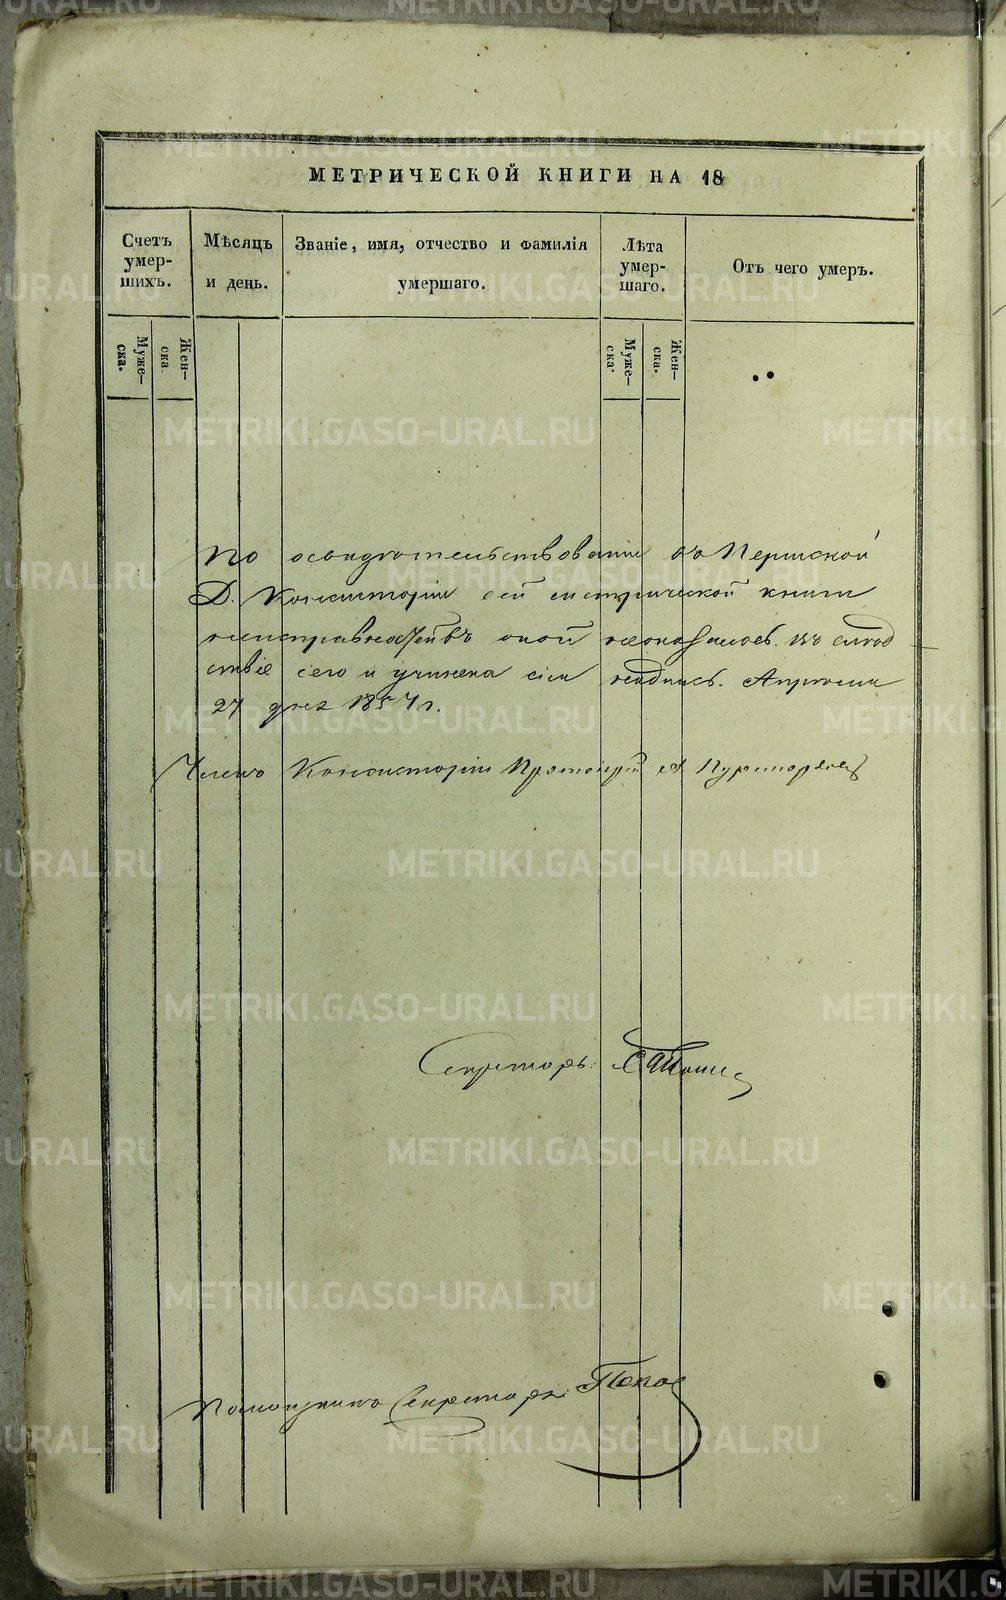 МЕТРИЧЕСКОЙ КНИГИ НА 18
Счетъ умер- шихъ.
Мѣсяцъ и день.
Званіе, имя, отчество и фамилія умершаго.
Лѣта умер- шаго.
Отъ чего умеръ.
Муже- ска.
Жен- ска.
Муже- ска.
Жен- ска.
По освидѣтельствованіи въ Пермской
Д. Консисторіи сей метрической книги
неисправностей въ оной неоказалось. въ слѣд
ствіе сего и учинена сія надпись. Апрѣля
27 дня 1857 г.
Членъ Консисторіи Протоіерей
Секретарь
Помощникъ Секретаря Попов
METRIKI.GASO-URAL.RU